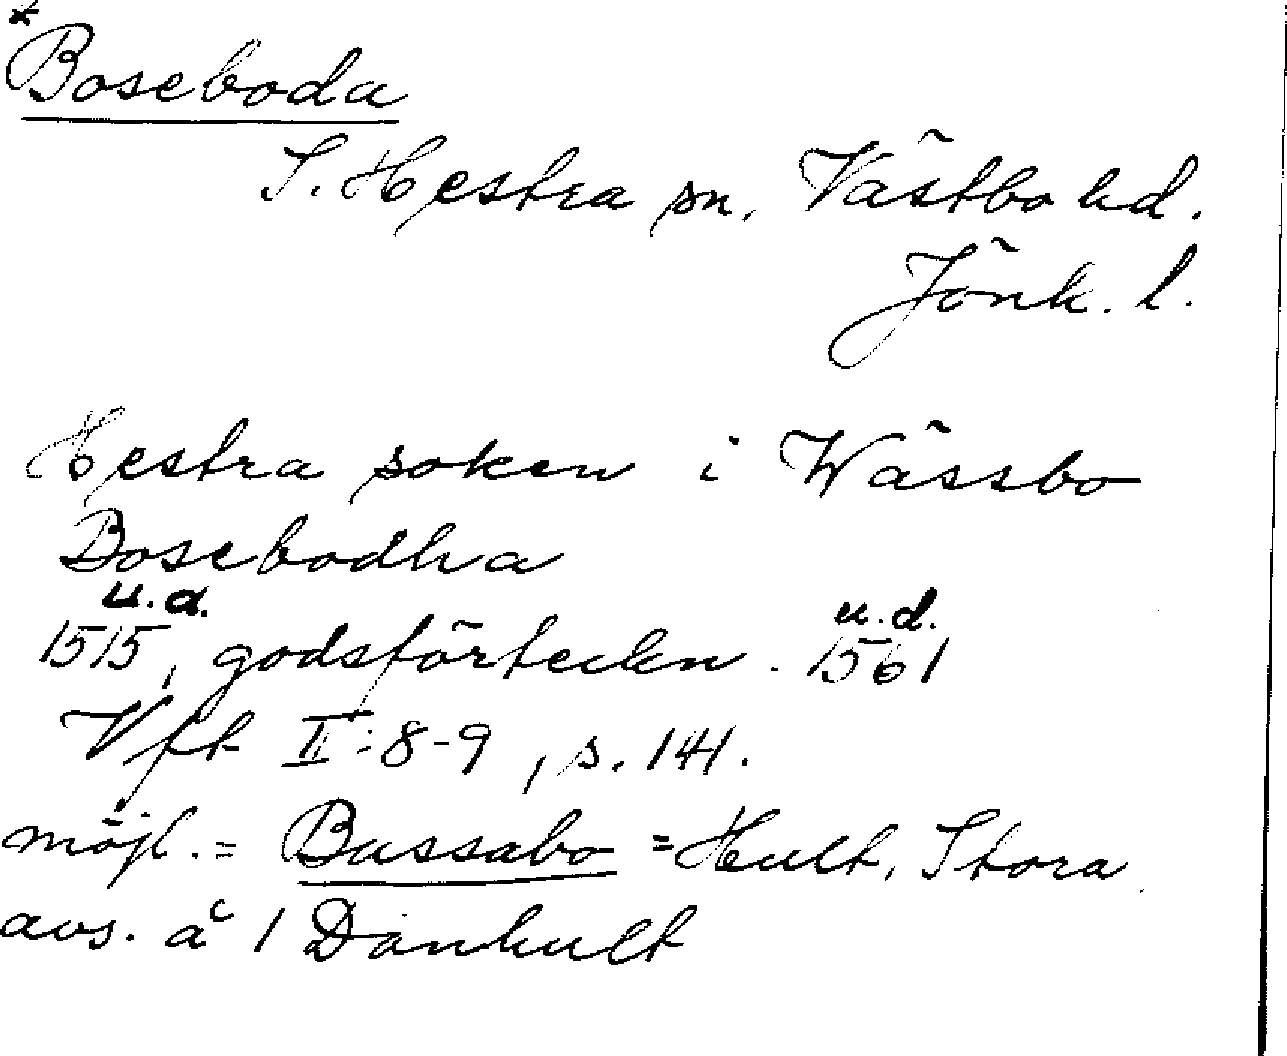 *Boseboda
S. Hestra sn. Västbo hd.
Jönk. l.
Hestra soken i Wässbo
Bosebodha
u.a. u.d.
1515, godsförteckn. 1561
Vfk II:8-9, s. 141.
möjl. = Bussabo = Hult, Stora
avs. å 1 Dänhult